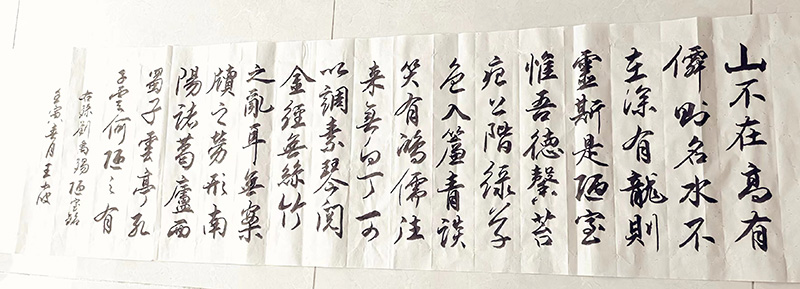 山不在高有
僊則名水不
在深有龍則
靈斯是陋室
惟吾德馨苔
痕上階綠草
色入簾青談
笑有鴻儒往
来無白丁可
以調素琴閱
金經無絲竹
之亂耳無案
牘之勞形南
陽諸葛廬西
蜀子雲亭孔
子云何陋之有
右錄劉禹錫陋室銘
壬寅春月王